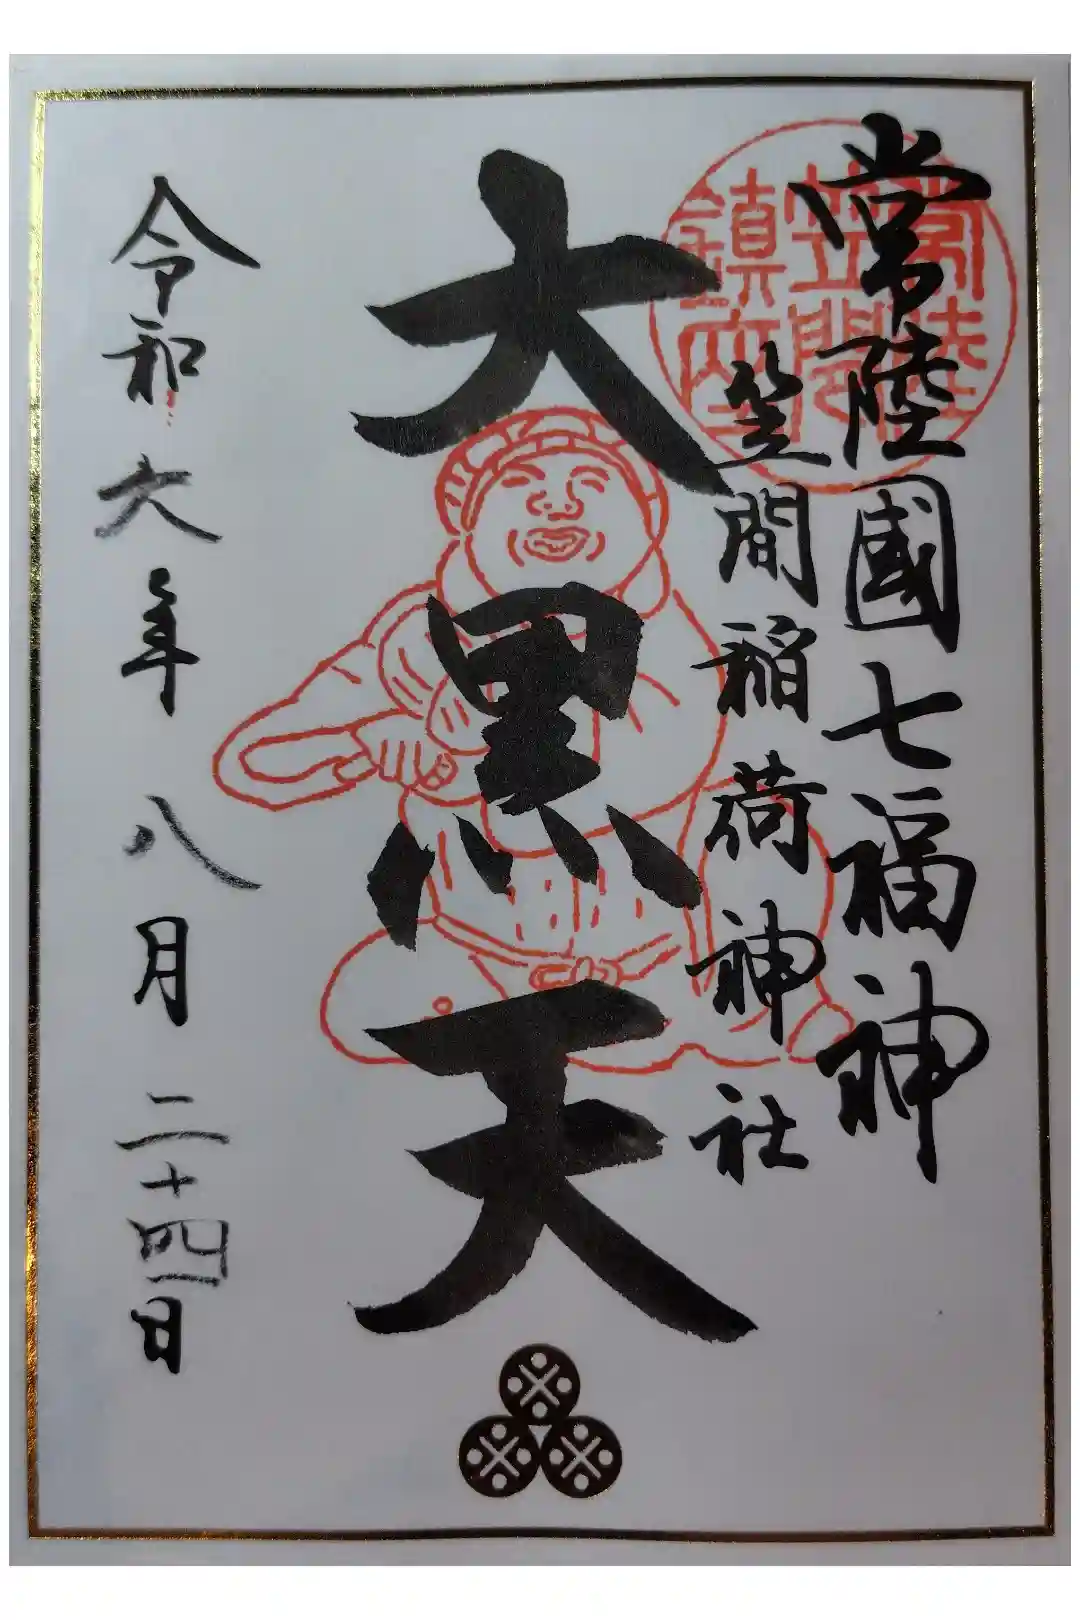 常陸國七福神
笠間稲荷神社
常陸
笠間
鎮座
大黒天
令和六年八月二十四日